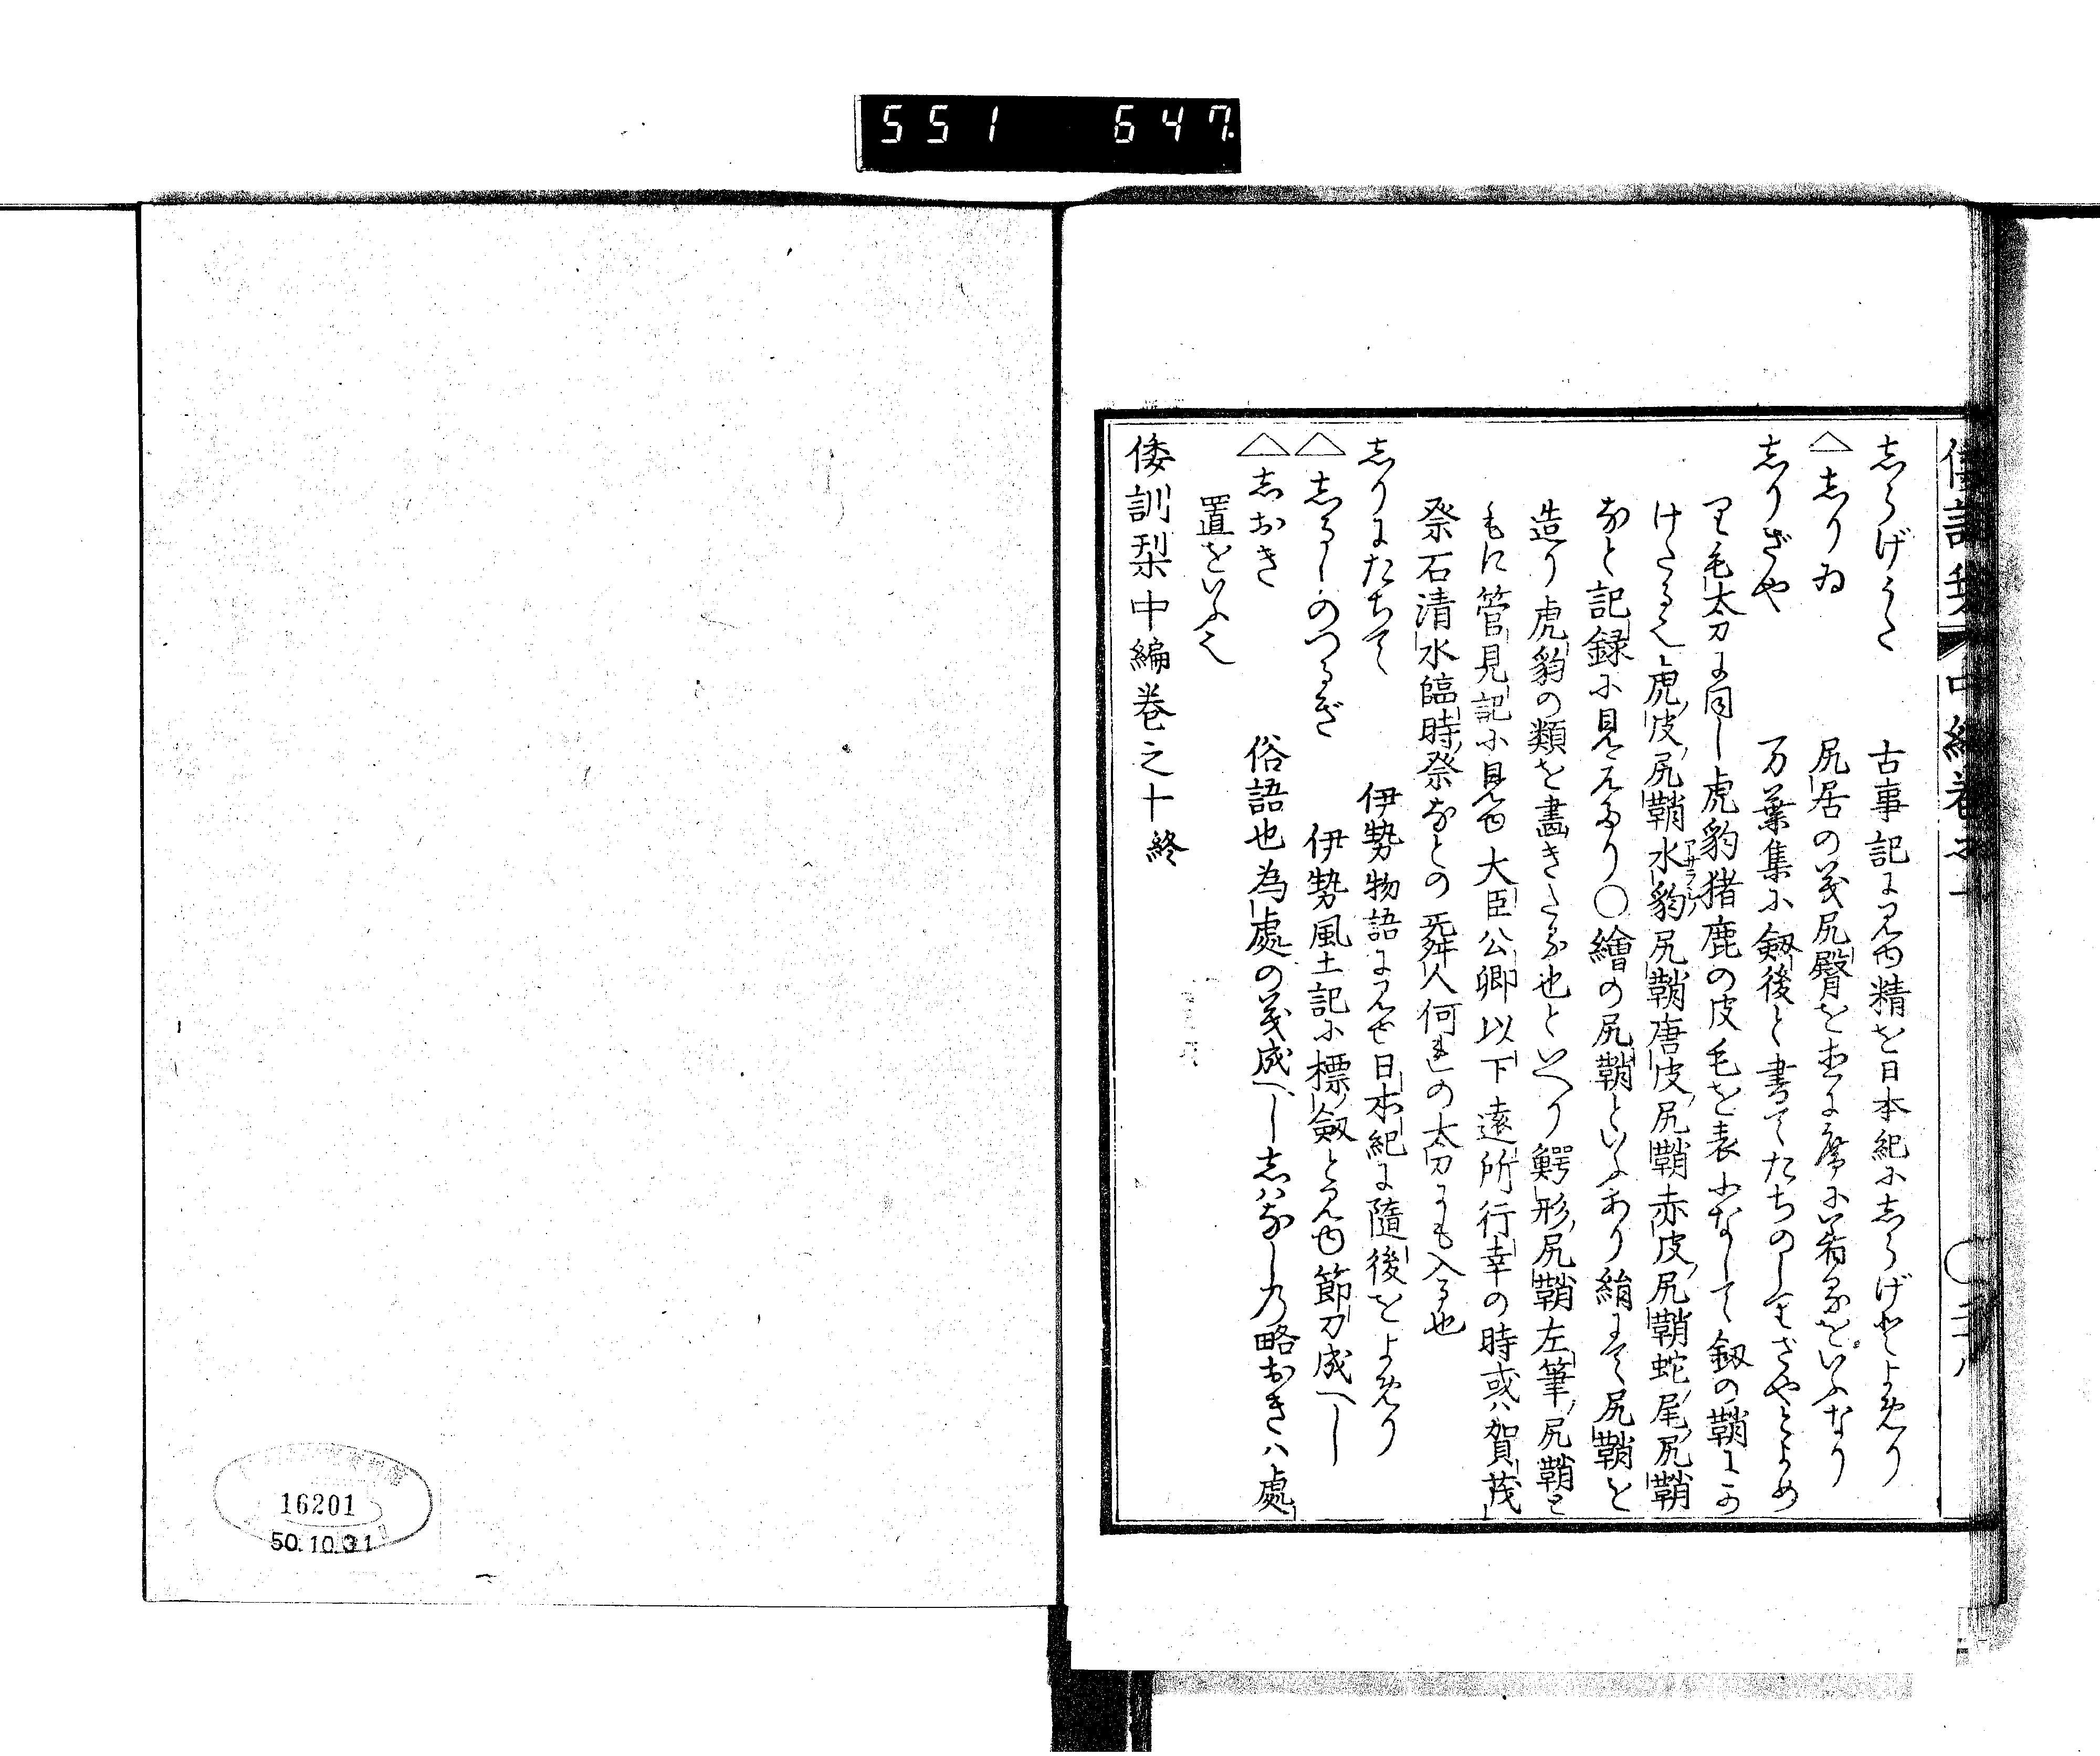 551 647
倭訓栞 中編巻之十
志らげうた 古事記に見ゆ精を日本紀に志らげとよめり
△志りゐ 尻居の義尻臀を出に席に着るをいふなり
志りざや 万葉集に劔後と書てたちのしりざやとよめ
り毛太刀に同し虎豹猪鹿の皮毛を表になして釼の鞘にか
けたる也虎皮尻鞘水豹尻鞘唐皮尻鞘赤皮尻鞘蛇尾尻鞘
アサラシ
なと記録に見えたり○繪の尻鞘といふあり絹にて尻鞘を
造り虎豹の類を畫きたる也といへり鰐形尻鞘左筆尻鞘と
もに管見記に見ゆ大臣公卿以下遠所行幸の時或ハ賀茂
祭石清水臨時祭なとの舞人何れの太刀にも入る也
志りにたちて 伊勢物語に見ゆ日本紀に隨後をよめり
△志るしのつるぎ 伊勢風土記に標劔と見ゆ節刀成へし
△志おき 俗語也為處の義成へし志ハなしの略おきハ處
置をいふ也
倭訓栞中編巻之十終
16201
50.10.31